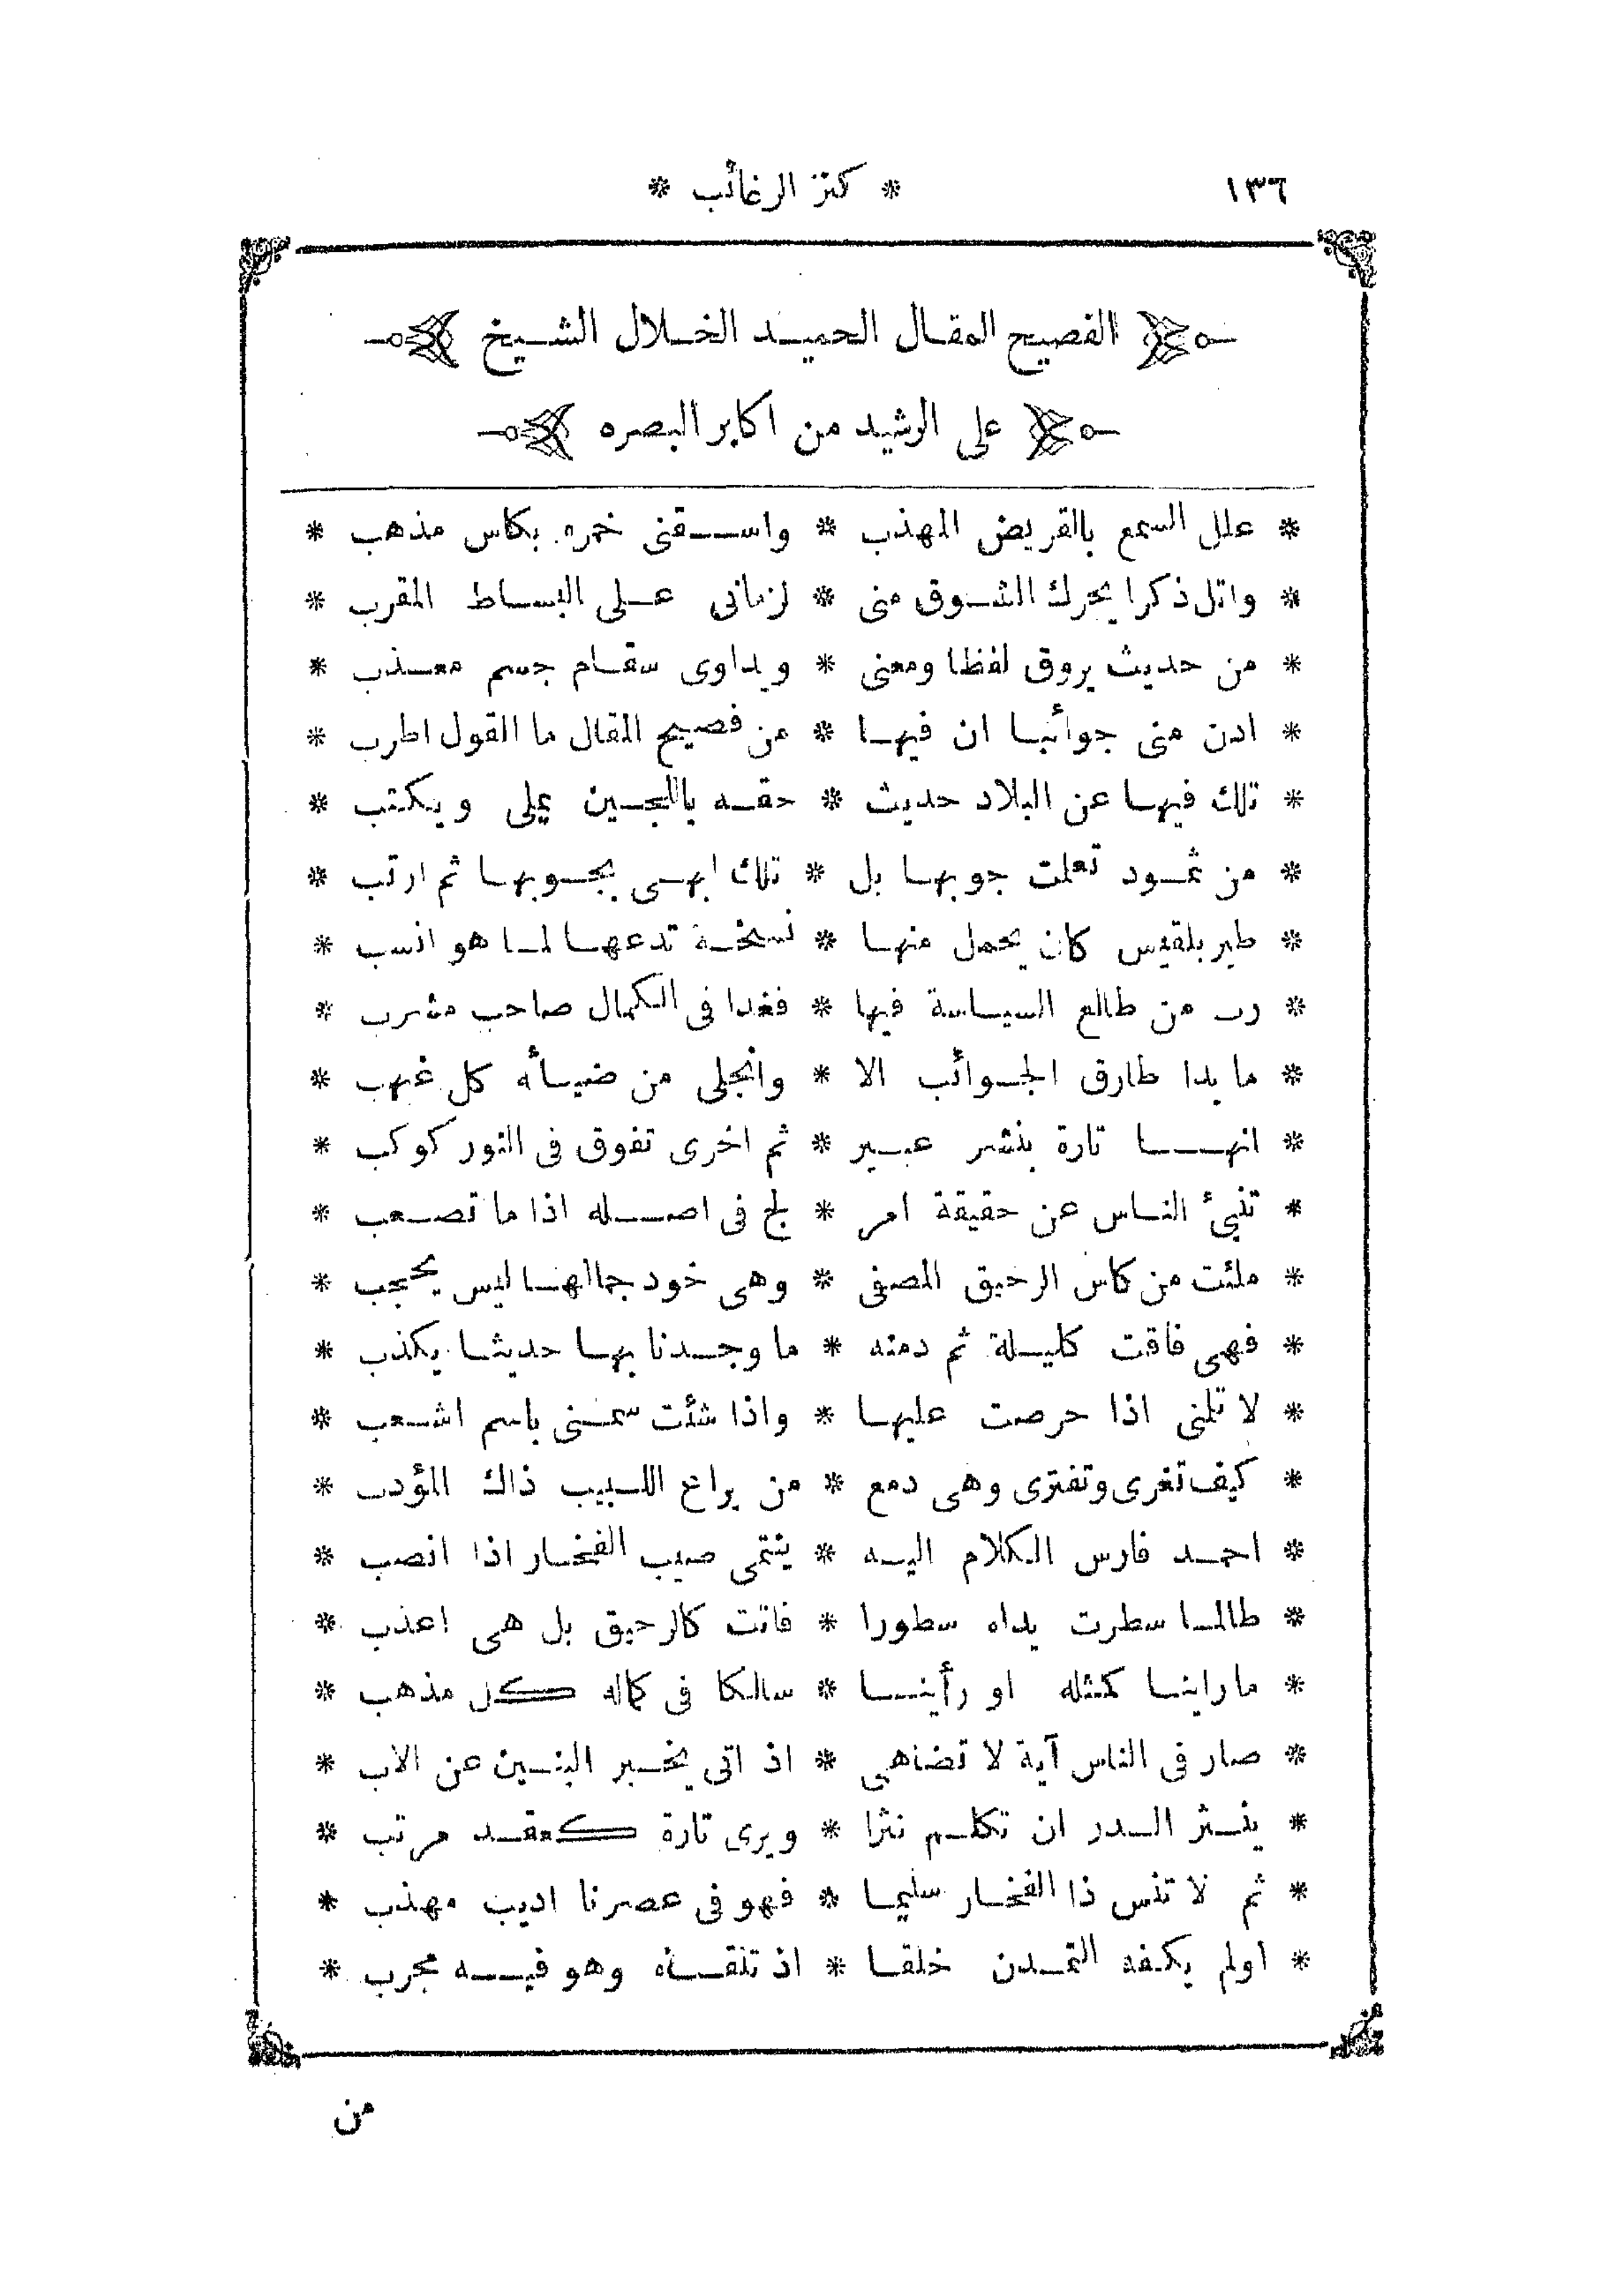 ١٣٦ * كنز الرغائب *
الفصيح المقال الحميد الخلال الشيخ
على الرشيد من اكابر البصره
* علل السمع بالقريض المهذب * واسقنى خمره بكاس مذهب *
* واتل ذكرا يحرك الشوق منى * لزمانى على البساط المقرب *
* من حديث يروق لفظا ومعنى * ويداوى سقام جسم معذب *
* ادن منى جوائبا ان فيها * من فصيح المقال ما القول اطرب *
* تلك فيها عن البلاد حديث * حقه باللجين يملى ويكتب *
* من ثمود تعلمت جوبها بل * تلك ابهى بجوبها ثم ارتب *
* طير بلقيس كان يحمل منها * نسخة تدعها لما هو انسب *
* رب من طالع السياسة فيها * فغدا فى الكمال صاحب مشرب *
* ما بدا طارق الجوائب الا * وانجلى من ضيائه كل غيهب *
* انها تارة بنشر عبير * ثم اخرى تفوق فى النور كوكب *
* تنبئ الناس عن حقيقة امر * لج فى اصله اذا ما تصعب *
* ملئت من كاس الرحيق المصفى * وهى خود جمالها ليس يحجب *
* فهى فاقت كليلة ثم دمنه * ما وجدنا بها حديثا يكذب *
* لا تلنى اذا حرصت عليها * واذا شئت سمنى باسم اشعب *
* كيف تغرى وتفترى وهى دمع * من يراع اللبيب ذاك المؤدب *
* احمد فارس الكلام اليه * ينتمى صيب الفخار اذا انصب *
* طالما سطرت يداه سطورا * فاتت كالرحيق بل هى اعذب *
* ما راينا كمثله او رأينا * سالكا فى كماله كل مذهب *
* صار فى الناس آية لا تضاهى * اذ اتى يخبر البنين عن الاب *
* ينثر الدر ان تكلم نثرا * ويرى تارة كعقد مرتب *
* ثم لا تنس ذا الفخار سليما * فهو فى عصرنا اديب مهذب *
* اولم يكفه التمدن خلقا * اذ تلقاه وهو فيه مجرب *
من